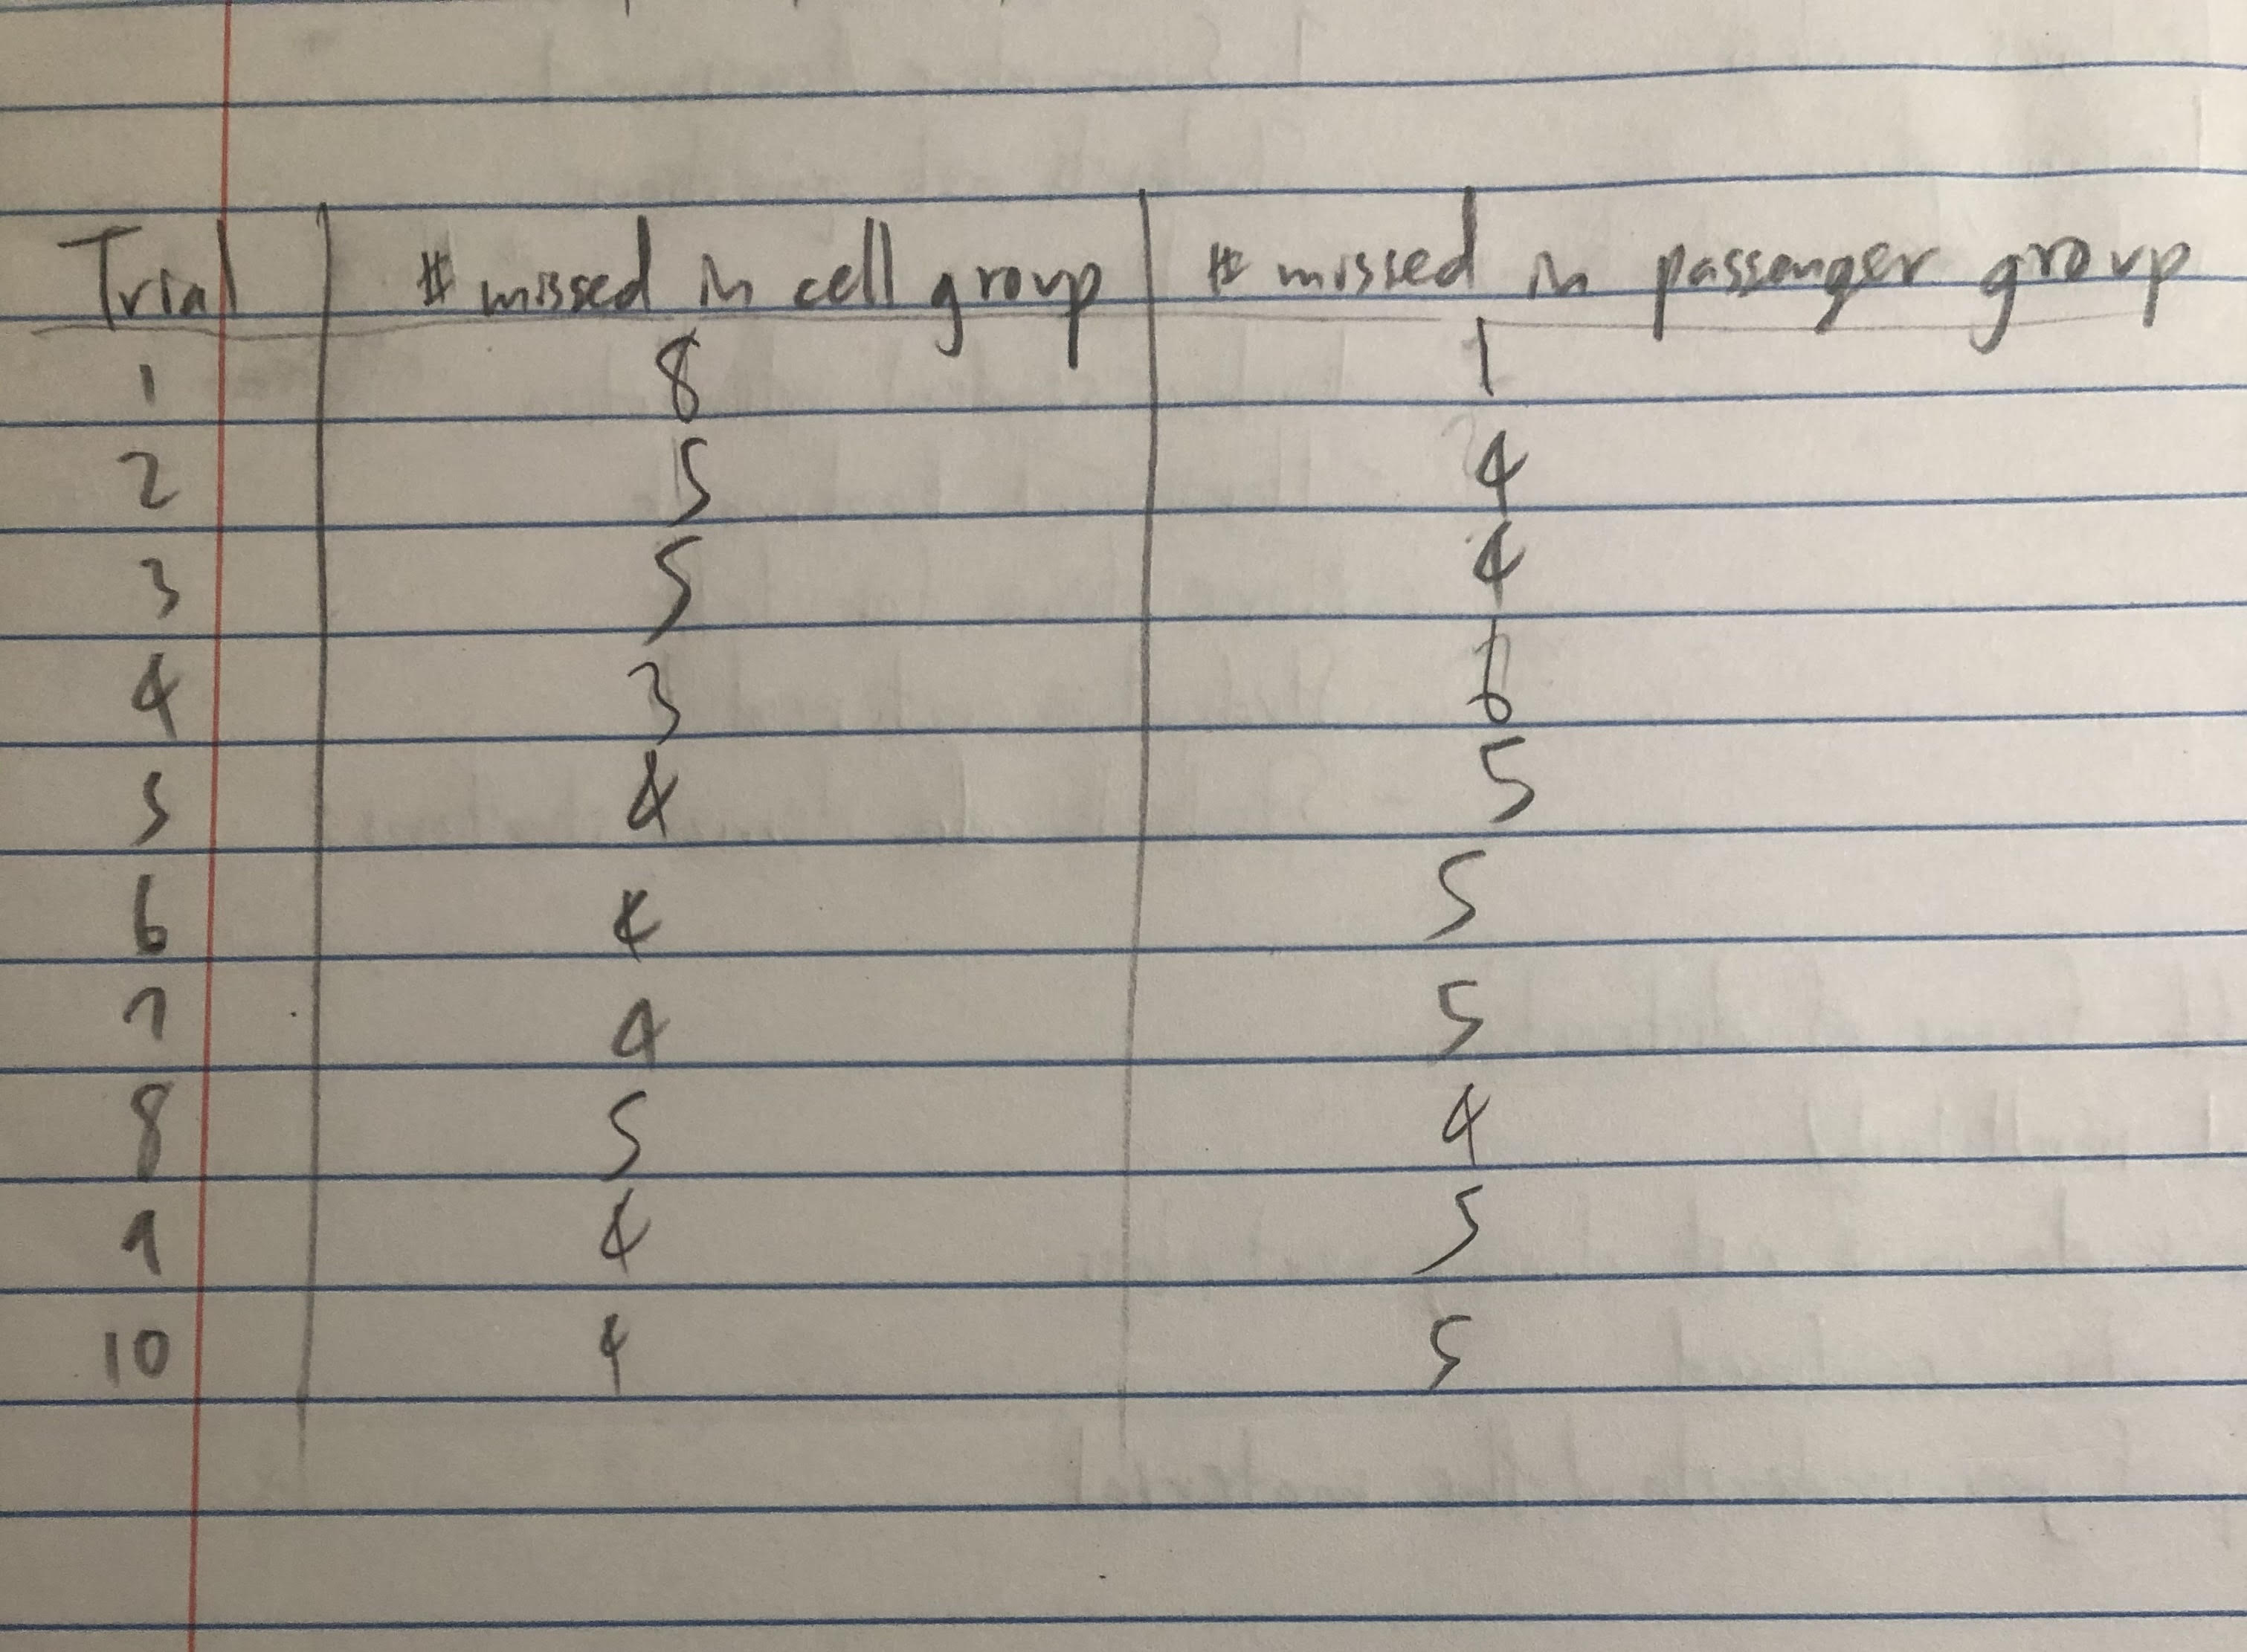 Trial # missed in cell group # missed in passenger group
1 8 1
2 5 4
3 5 4
4 3 6
5 4 5
6 4 5
7 4 5
8 5 4
9 4 5
10 4 5